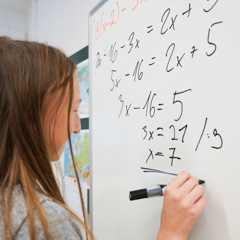 8(x-2) - 3x = 2x + 5
8x - 16 - 3x = 2x + 5
5x - 16 = 2x + 5
3x - 16 = 5
3x = 21 / :3
x = 7